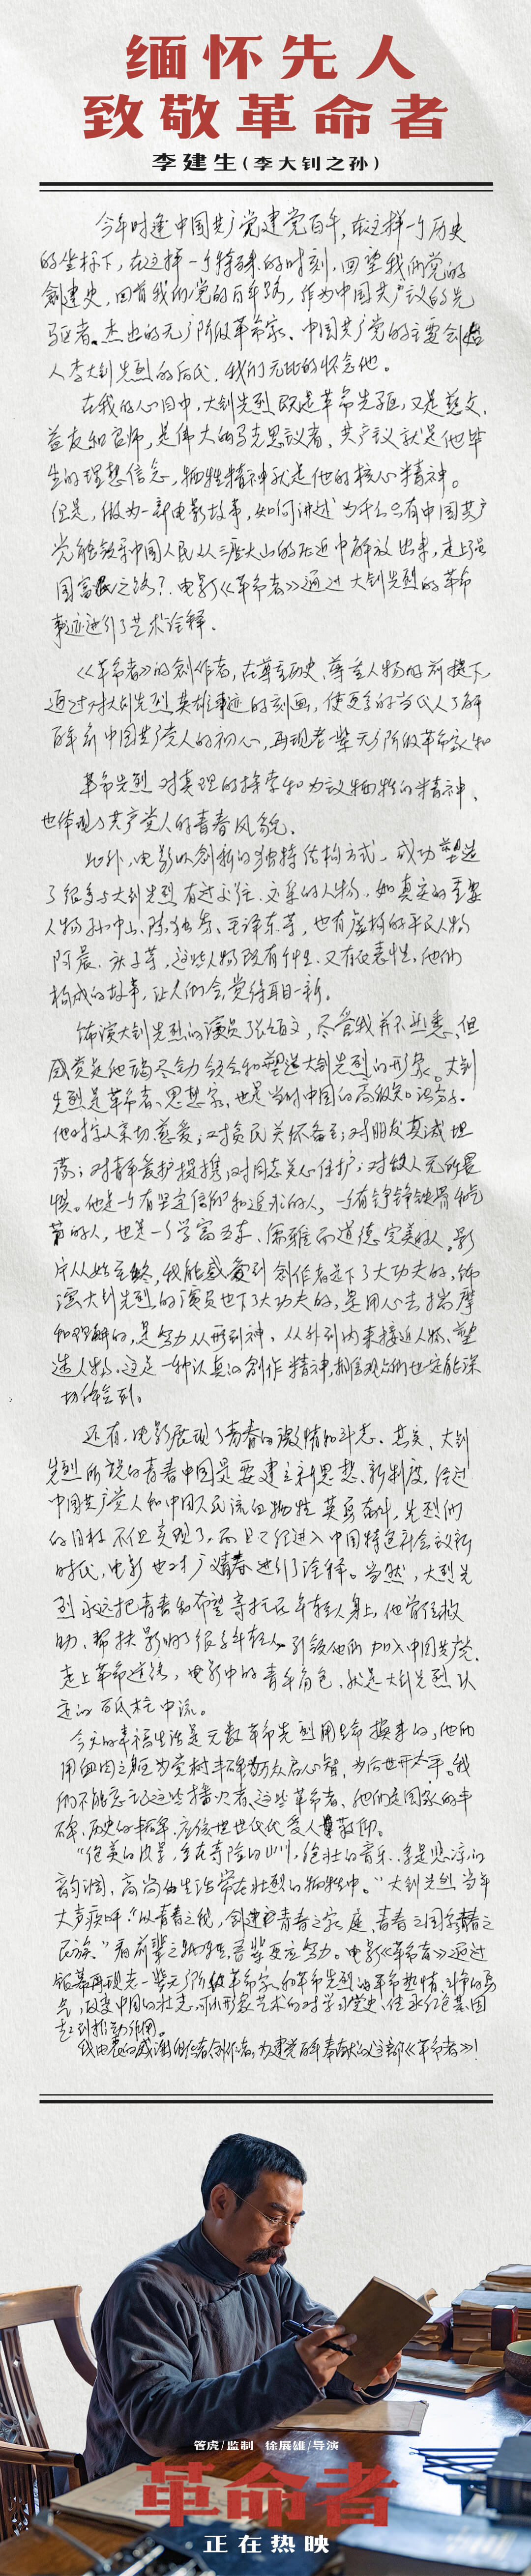 缅怀先人
致敬革命者
李建生(李大钊之孙)
今年时逢中国共产党建党百年,在这样一个历史
的坐标下,在这样一个特殊的时刻,回望我们党的
创建史,回首我们党的百年路,作为中国共产主义的先
驱者、杰出的无产阶级革命家、中国共产党的主要创始
人李大钊先烈的后代,我们无比的怀念他。
在我的心目中,大钊先烈既是革命先驱,又是慈父、
益友和良师,是伟大的马克思主义者,共产主义就是他毕
生的理想信念,牺牲精神就是他的核心精神。
但是,做为一部电影故事,如何讲述为什么只有中国共产
党能领导中国人民从三座大山的压迫中解放出来,走上强
国富民之路?电影《革命者》通过大钊先烈的革命
事迹进行了艺术诠释。
《革命者》的创作者,在尊重历史、尊重人物的前提下,
通过对大钊先烈英雄事迹的刻画,使更多的当代人了解
百年前中国共产党人的初心,再现老一辈无产阶级革命家和
革命先烈对真理的探索和为主义牺牲的精神,
也体现了共产党人的青春风貌。
此外,电影以创新的独特结构方式,成功塑造
了很多与大钊先烈有过交往、交集的人物,如真实的重要
人物孙中山、陈独秀、毛泽东等,也有虚构的平民人物
阿晨、庆子等,这些人物既有个性,又有代表性,他们
构成的故事,让人们会觉得耳目一新。
饰演大钊先烈的演员张颂文,尽管我并不熟悉,但
感觉是他竭尽全力领会和塑造大钊先烈的形象。大钊
先烈是革命者、思想家,也是当时中国的高级知识分子。
他对家人亲切慈爱;对贫民关怀备至;对朋友真诚坦
荡;对青年爱护提携;对同志关心保护;对敌人无所畏
惧。他是一个有坚定信仰和追求的人,一个有铮铮铁骨和气
节的人,也是一个学富五车、儒雅而道德完美的人。影
片从始至终,我能感受到创作者是下了大功夫的,饰
演大钊先烈的演员也下了大功夫的,是用心去揣摩
和理解的,是努力从形到神、从外到内来接近人物、塑
造人物。这是一种认真的创作精神,相信观众们也一定能深
切体会到。
还有,电影展现了青春的激情和斗志。其实,大钊
先烈所说的青春中国是要建立新思想、新制度,经过
中国共产党人和中国人民流血牺牲英勇奋斗,先烈们
的目标不但实现了,而且已经进入中国特色社会主义新
时代,电影也对广义青春进行了诠释。当然,大钊先
烈永远把青春和希望寄托在年轻人身上,他曾经救
助、帮扶、影响了很多年轻人,引领他们加入中国共产党,
走上革命道路,电影中的青年角色,就是大钊先烈认
定的百砥柱中流。
今天的幸福生活是无数革命先烈用生命换来的,他们
用血肉之躯为党树丰碑,为万众启心智,为后世开太平。我
们不能忘记这些播火者、这些革命者,他们是国家的丰
碑,历史的丰碑,应该世世代代受人敬仰。
“绝美的风景,多在奇险的山川,绝壮的音乐,多是悲凉的
韵调,高尚的生活常在壮烈的牺牲中。”大钊先烈当年
大声疾呼:“以青春之我,创建青春之家庭,青春之国家,青春之
民族。”看前辈之牺牲,吾辈更应努力。电影《革命者》通过
银幕再现老一辈无产阶级革命家和革命先烈的革命热情、斗争的勇
气,改变中国的壮志,可以形象艺术的对学习党史、传承红色基因
起到推动作用。
我由衷的感谢创作者,为建党百年奉献的这部《革命者》!
管虎/监制 徐展雄/导演
革命者
正在热映